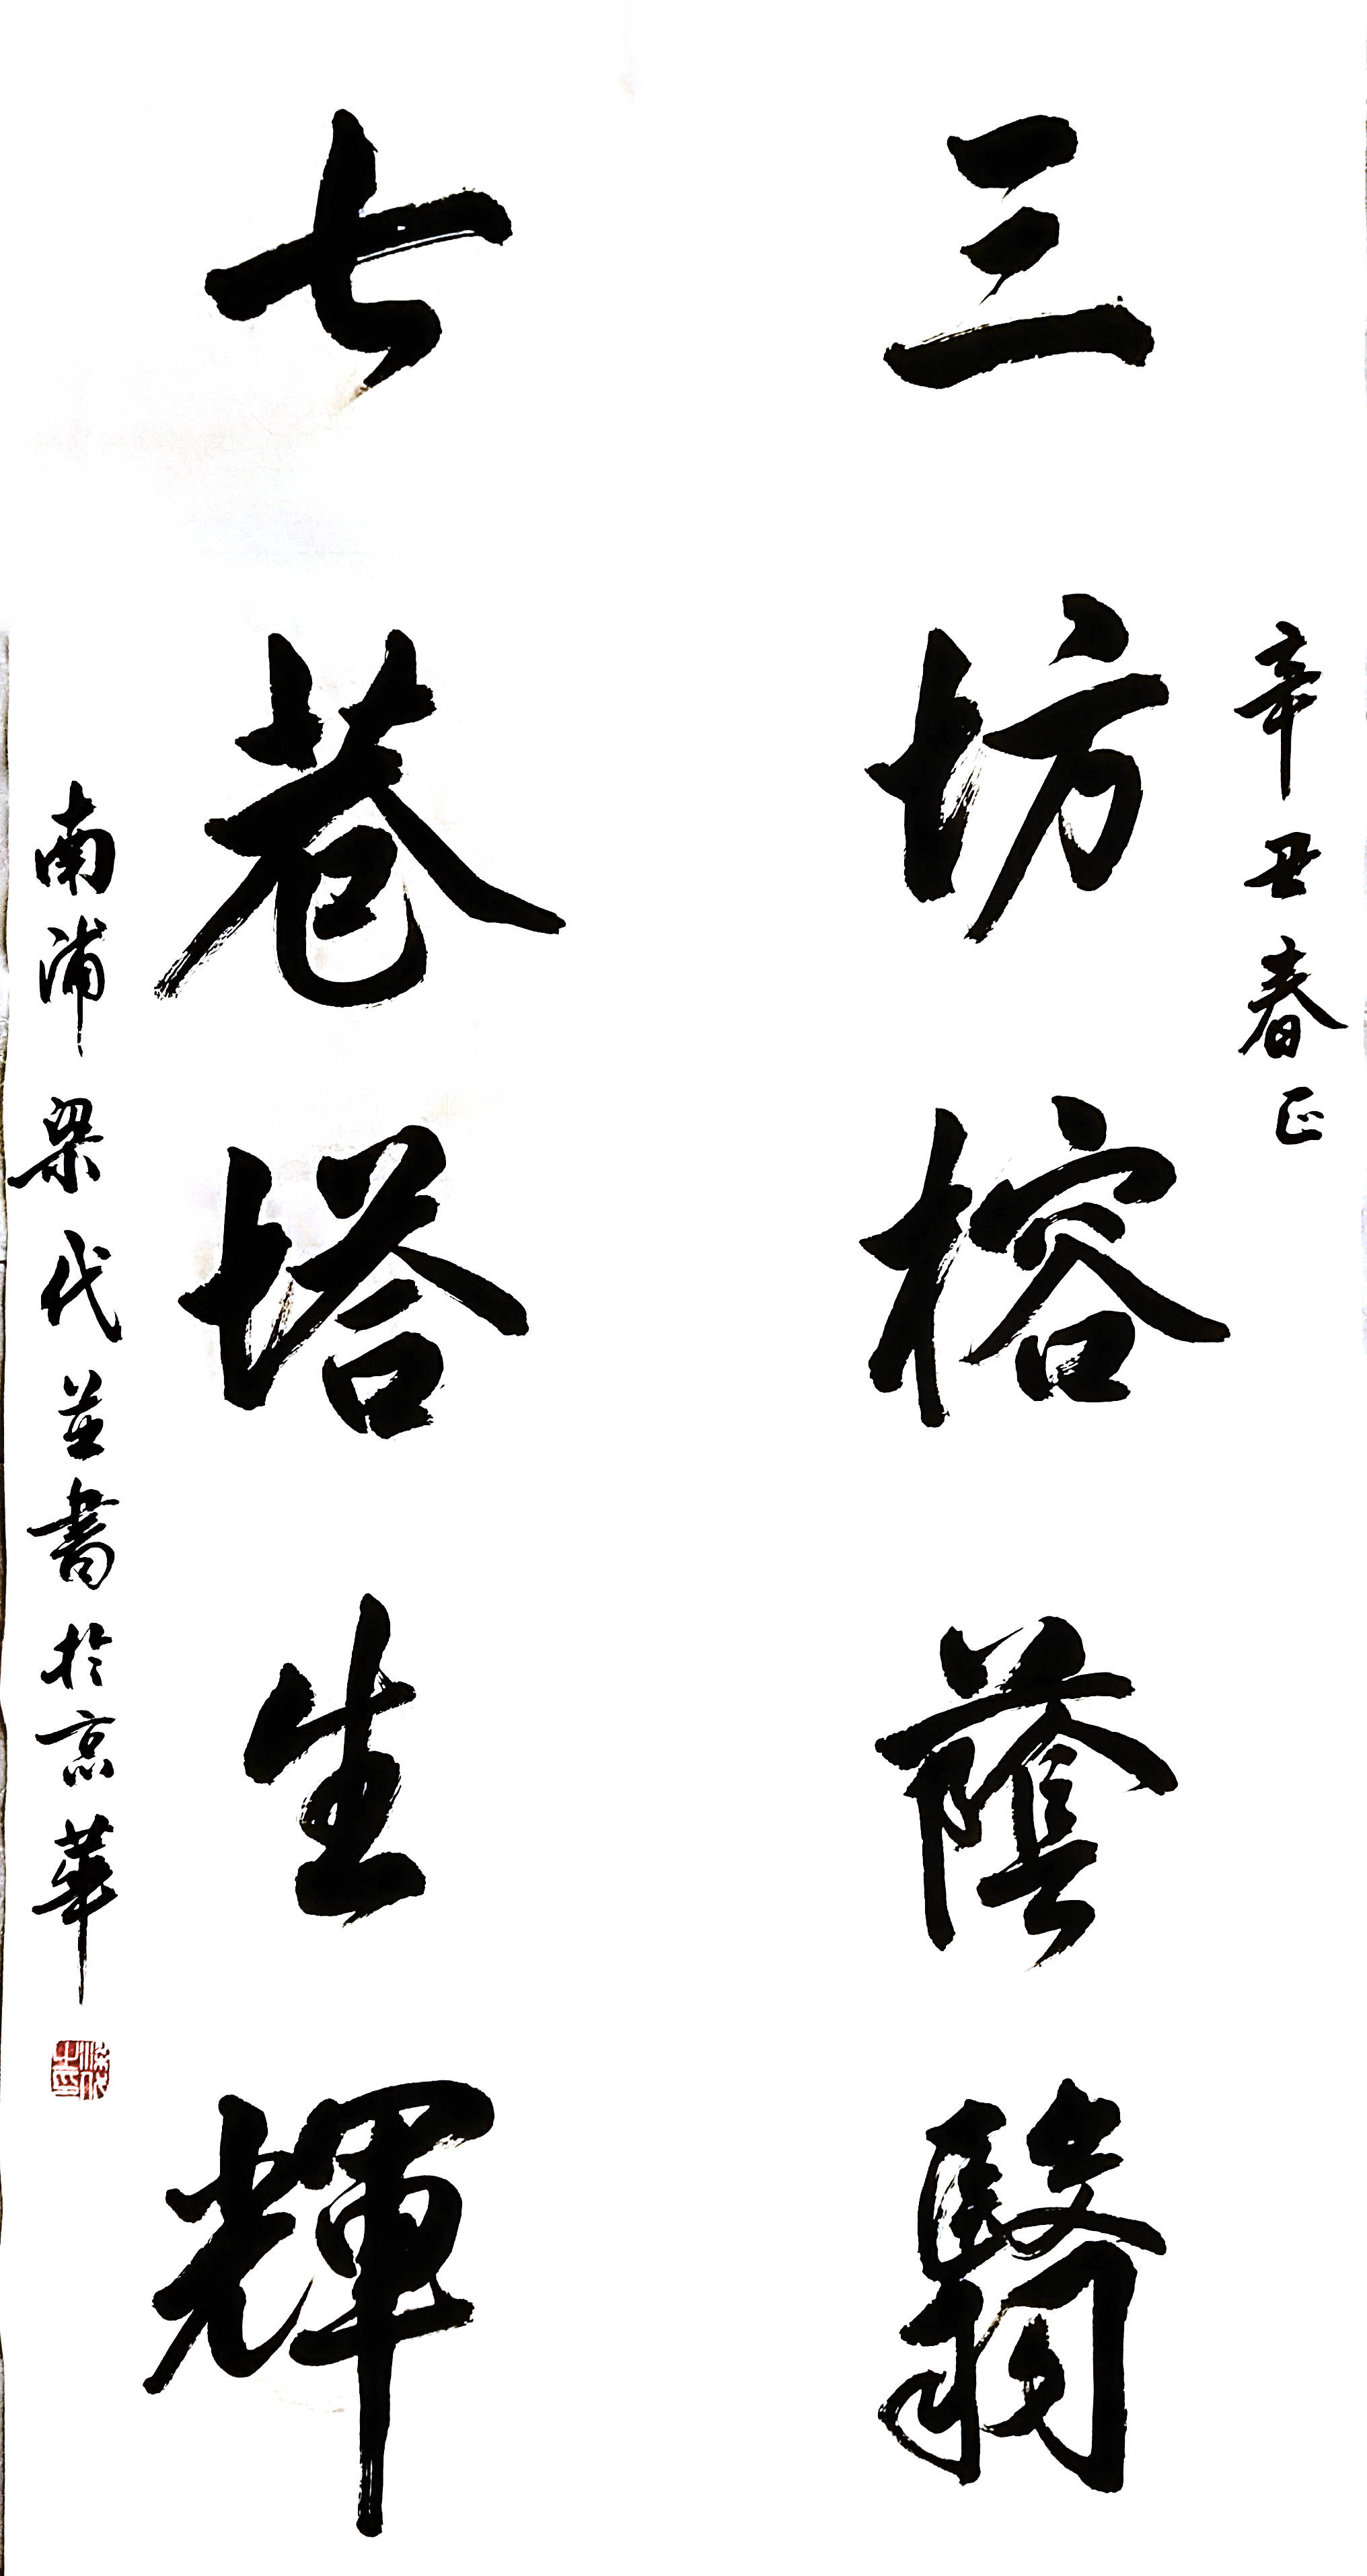 辛丑春正
三坊榕蔭翳
七巷塔生輝
南浦梁代並書於京華